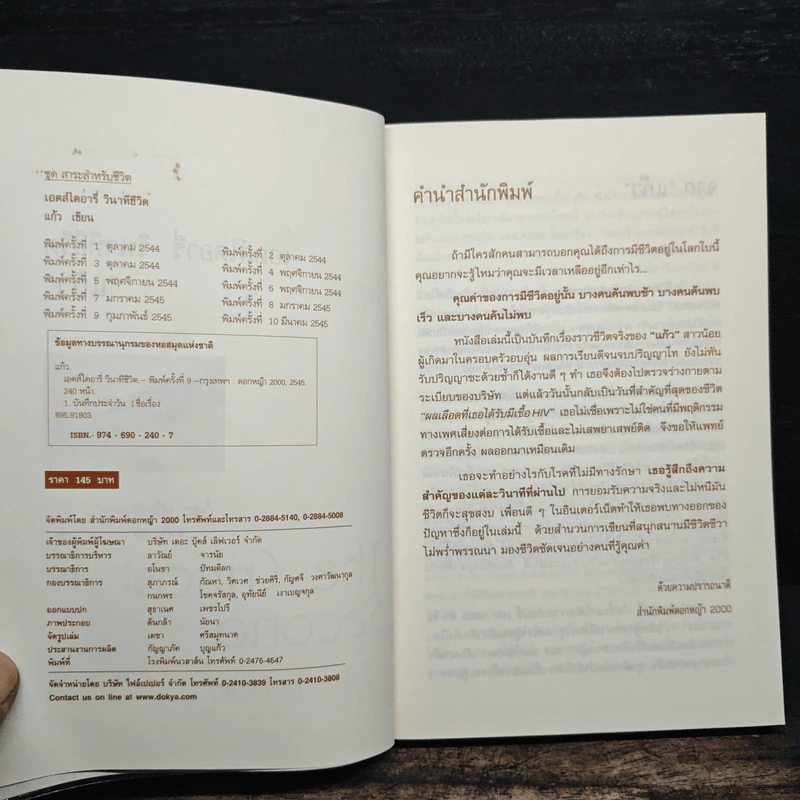 ชุด สาระสำหรับชีวิต
เอดส์ไดอารี่ วินาทีชีวิต
แก้ว เขียน
พิมพ์ครั้งที่ 1 ตุลาคม 2544
พิมพ์ครั้งที่ 2 ตุลาคม 2544
พิมพ์ครั้งที่ 3 ตุลาคม 2544
พิมพ์ครั้งที่ 4 พฤศจิกายน 2544
พิมพ์ครั้งที่ 5 พฤศจิกายน 2544
พิมพ์ครั้งที่ 6 พฤศจิกายน 2544
พิมพ์ครั้งที่ 7 มกราคม 2545
พิมพ์ครั้งที่ 8 มกราคม 2545
พิมพ์ครั้งที่ 9 กุมภาพันธ์ 2545
พิมพ์ครั้งที่ 10 มีนาคม 2545
ข้อมูลทางบรรณานุกรมของหอสมุดแห่งชาติ
แก้ว.
เอดส์ไดอารี่ วินาทีชีวิต.-- พิมพ์ครั้งที่ 9 --กรุงเทพฯ : ดอกหญ้า 2000, 2545.
240 หน้า.
1. บันทึกประจำวัน I.ชื่อเรื่อง
895.91803
ISBN.- 974 - 690 - 240 - 7
ราคา 145 บาท
จัดพิมพ์โดย สำนักพิมพ์ดอกหญ้า 2000 โทรศัพท์และโทรสาร 0-2884-5140, 0-2884-5008
เจ้าของผู้พิมพ์ผู้โฆษณา บริษัท เดอะ บุ๊คส์ เลิฟเวอร์ จำกัด
บรรณาธิการบริหาร ลาวัณย์ จารนัย
บรรณาธิการ อโนชา ปัทมดิลก
กองบรรณาธิการ สุภาภรณ์ กัณหา, วิศเวศ ช่วยศิริ, กัญศจี วงศาวัฒนากุล
กนกพร โชคจรัสกุล, อุทัยนีย์ เงาเบญจกุล
ออกแบบปก สุธาเนศ เพชรโปรี
ภาพประกอบ ต้นกล้า นัยนา
จัดรูปเล่ม เดชา ศรีสมุทนาค
ประสานงานการผลิต กัญญาภัค บุญแก้ว
พิมพ์ที่ โรงพิมพ์นวสาส์น โทรศัพท์ 0-2476-4647
จัดจำหน่ายโดย บริษัท ไฟล์เปเปอร์ จำกัด โทรศัพท์ 0-2410-3839 โทรสาร 0-2410-3808
Contact us on line at www.dokya.com
คำนำสำนักพิมพ์
ถ้ามีใครสักคนสามารถบอกคุณได้ถึงการมีชีวิตอยู่ในโลกใบนี้
คุณอยากจะรู้ไหมว่าคุณจะมีเวลาเหลืออยู่อีกเท่าไร...
คุณค่าของการมีชีวิตอยู่นั้น บางคนค้นพบช้า บางคนค้นพบ
เร็ว และบางคนค้นไม่พบ
หนังสือเล่มนี้เป็นบันทึกเรื่องราวชีวิตจริงของ "แก้ว" สาวน้อย
ผู้เกิดมาในครอบครัวอบอุ่น ผลการเรียนดีจนจบปริญญาโท ยังไม่ทัน
รับปริญญาซะด้วยซ้ำก็ได้งานดี ๆ ทำ เธอจึงต้องไปตรวจร่างกายตาม
ระเบียบของบริษัท แต่แล้ววันนั้นกลับเป็นวันที่สำคัญที่สุดของชีวิต
"ผลเลือดที่เธอได้รับมีเชื้อ HIV" เธอไม่เชื่อเพราะไม่ใช่คนที่มีพฤติกรรม
ทางเพศเสี่ยงต่อการได้รับเชื้อและไม่เสพยาเสพย์ติด จึงขอให้แพทย์
ตรวจอีกครั้ง ผลออกมาเหมือนเดิม
เธอจะทำอย่างไรกับโรคที่ไม่มีทางรักษา เธอรู้สึกถึงความ
สำคัญของแต่ละวินาทีที่ผ่านไป การยอมรับความจริงและไม่หนีมัน
ชีวิตก็จะสุขสงบ เพื่อนดี ๆ ในอินเตอร์เน็ตทำให้เธอพบทางออกของ
ปัญหาซึ่งก็อยู่ในเล่มนี้ ด้วยสำนวนการเขียนที่สนุกสนานมีชีวิตชีวา
ไม่พร่ำพรรณนา มองชีวิตชัดเจนอย่างคนที่รู้คุณค่า
ด้วยความปรารถนาดี
สำนักพิมพ์ดอกหญ้า 2000